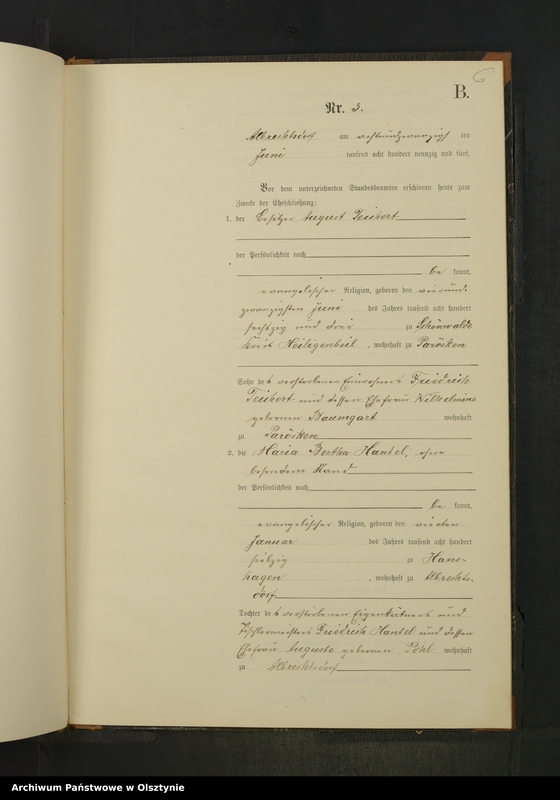 6
B.
Nr. 3.
Albrechtsdorf am achtundzwanzigsten
Juni tausend acht hundert neunzig und fünf.
Vor dem unterzeichneten Standesbeamten erschienen heute zum
Zwecke der Eheschließung:
1. der Besitzer August Teichert
der Persönlichkeit nach
be kannt,
evangelischer Religion, geboren den vierund-
zwanzigsten Juni des Jahres tausend acht hundert
sechzig und drei zu Schönwalde
Kreis Heiligenbeil, wohnhaft zu Paröſken
Sohn des verstorbenen Einwohners Friedrich
Teichert und dessen Ehefrau Wilhelmine
geborenen Baumgart wohnhaft
zu Paröſken
2. die Maria Bertha Hantel, ohne
besondern Stand
der Persönlichkeit nach
be kannt,
evangelischer Religion, geboren den vierten
Januar des Jahres tausend acht hundert
siebzig zu Hans-
hagen, wohnhaft zu Albrechts-
dorf
Tochter des verstorbenen Eigenkätners und
Tischlermeisters Friedrich Hantel und dessen
Ehefrau Auguste geborenen Pohl wohnhaft
zu Albrechtsdorf
Archiwum Państwowe w Olsztynie